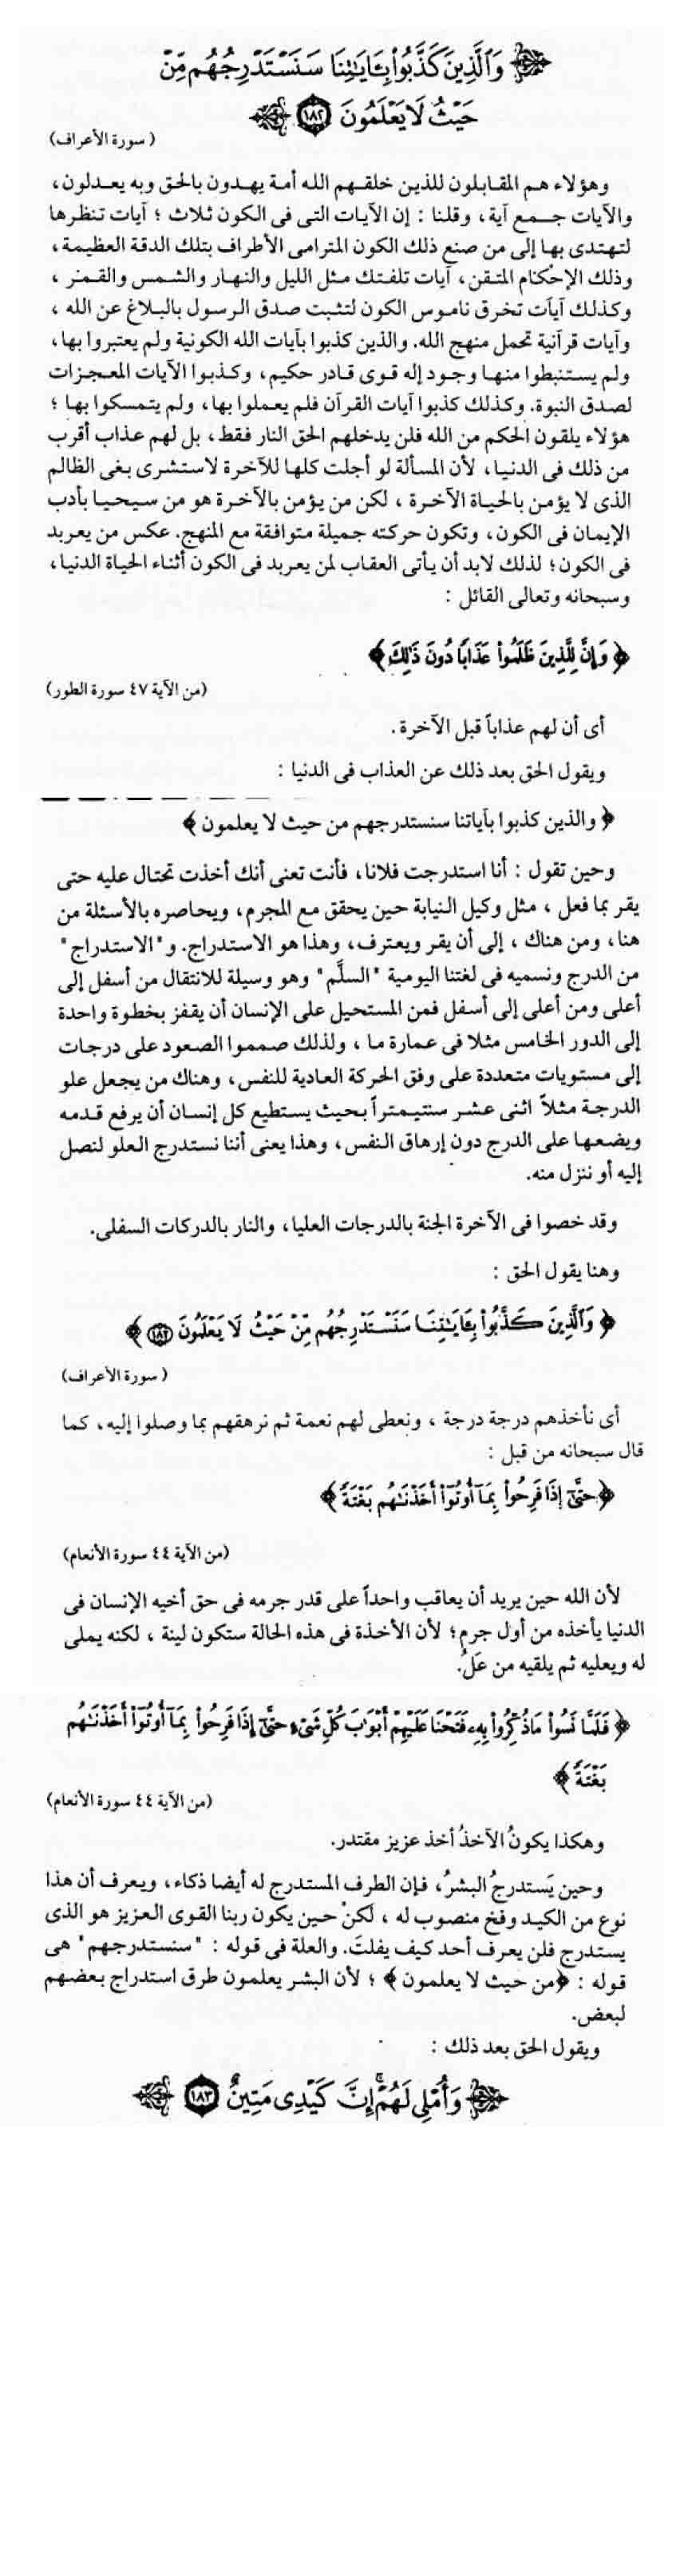 وَٱلَّذِينَ كَذَّبُوا۟ بِـَٔايَـٰتِنَا سَنَسْتَدْرِجُهُم مِّنْ
حَيْثُ لَا يَعْلَمُونَ ١٨٢
( سورة الأعراف )
وهؤلاء هم المقابلون للذين خلقهم الله أمة يهدون بالحق وبه يعدلون،
والآيات جمع آية، وقلنا : إن الآيات التى فى الكون ثلاث ؛ آيات تنظرها
لتهتدى بها إلى من صنع ذلك الكون المترامى الأطراف بتلك الدقة العظيمة،
وذلك الإحكام المتقن، آيات تلفتك مثل الليل والنهار والشمس والقمر ،
وكذلك آيات تخرق ناموس الكون لتثبت صدق الرسول بالبلاغ عن الله ،
وآيات قرآنية تحمل منهج الله. والذين كذبوا بآيات الله الكونية ولم يعتبروا بها،
ولم يستنبطوا منها وجود إله قوى قادر حكيم، وكذبوا الآيات المعجزات
لصدق النبوة. وكذلك كذبوا آيات القرآن فلم يعملوا بها، ولم يتمسكوا بها ؛
هؤلاء يلقون الحكم من الله فلن يدخلهم الحق النار فقط، بل لهم عذاب أقرب
من ذلك فى الدنيا، لأن المسألة لو أجلت كلها للآخرة لاستشرى بغى الظالم
الذى لا يؤمن بالحياة الآخرة ، لكن من يؤمن بالآخرة هو من سيحيا بأدب
الإيمان فى الكون، وتكون حركته جميلة متوافقة مع المنهج. عكس من يعربد
فى الكون؛ لذلك لابد أن يأتى العقاب لمن يعربد فى الكون أثناء الحياة الدنيا،
وسبحانه وتعالى القائل :
﴿ وَإِنَّ لِلَّذِينَ ظَلَمُوا۟ عَذَابًا دُونَ ذَٰلِكَ ﴾
(من الآية ٤٧ سورة الطور)
أى أن لهم عذاباً قبل الآخرة .
ويقول الحق بعد ذلك عن العذاب فى الدنيا :
﴿ والذين كذبوا بآياتنا سنستدرجهم من حيث لا يعلمون ﴾
وحين تقول : أنا استدرجت فلانا، فأنت تعنى أنك أخذت تحتال عليه حتى
يقر بما فعل ، مثل وكيل النيابة حين يحقق مع المجرم، ويحاصره بالأسئلة من
هنا، ومن هناك ، إلى أن يقر ويعترف، وهذا هو الاستدراج. و"الاستدراج"
من الدرج ونسميه فى لغتنا اليومية "السلَّم" وهو وسيلة للانتقال من أسفل إلى
أعلى ومن أعلى إلى أسفل فمن المستحيل على الإنسان أن يقفز بخطوة واحدة
إلى الدور الخامس مثلا فى عمارة ما ، ولذلك صمموا الصعود على درجات
إلى مستويات متعددة على وفق الحركة العادية للنفس، وهناك من يجعل علو
الدرجة مثلاً اثنى عشر سنتيمتراً بحيث يستطيع كل إنسان أن يرفع قدمه
ويضعها على الدرج دون إرهاق النفس، وهذا يعنى أننا نستدرج العلو لنصل
إليه أو ننزل منه.
وقد خصوا فى الآخرة الجنة بالدرجات العليا، والنار بالدركات السفلى.
وهنا يقول الحق :
﴿ وَٱلَّذِينَ كَذَّبُوا۟ بِـَٔايَـٰتِنَا سَنَسْتَدْرِجُهُم مِّنْ حَيْثُ لَا يَعْلَمُونَ ١٨٢ ﴾
( سورة الأعراف )
أى نأخذهم درجة درجة ، ونعطى لهم نعمة ثم نرهقهم بما وصلوا إليه، كما
قال سبحانه من قبل :
﴿ حَتَّىٰٓ إِذَا فَرِحُوا۟ بِمَآ أُوتُوٓا۟ أَخَذْنَـٰهُم بَغْتَةً ﴾
(من الآية ٤٤ سورة الأنعام)
لأن الله حين يريد أن يعاقب واحداً على قدر جرمه فى حق أخيه الإنسان فى
الدنيا يأخذه من أول جرم؛ لأن الأخذة فى هذه الحالة ستكون لينة ، لكنه يملى
له ويعليه ثم يلقيه من عَلُ.
﴿ فَلَمَّا نَسُوا۟ مَا ذُكِّرُوا۟ بِهِۦ فَتَحْنَا عَلَيْهِمْ أَبْوَٰبَ كُلِّ شَىْءٍ حَتَّىٰٓ إِذَا فَرِحُوا۟ بِمَآ أُوتُوٓا۟ أَخَذْنَـٰهُم
بَغْتَةً ﴾
(من الآية ٤٤ سورة الأنعام)
وهكذا يكونُ الآخذُ أخذ عزيز مقتدر.
وحين يَستدرجُ البشرُ، فإن الطرف المستدرج له أيضا ذكاء، ويعرف أن هذا
نوع من الكيد وفخ منصوب له ، لكنْ حين يكون ربنا القوى العزيز هو الذى
يستدرج فلن يعرف أحد كيف يفلتَ. والعلة فى قوله : "سنستدرجهم" هى
قوله : ﴿من حيث لا يعلمون﴾ ؛ لأن البشر يعلمون طرق استدراج بعضهم
لبعض.
ويقول الحق بعد ذلك :
وَأُمْلِى لَهُمْ ۚ إِنَّ كَيْدِى مَتِينٌ ١٨٣